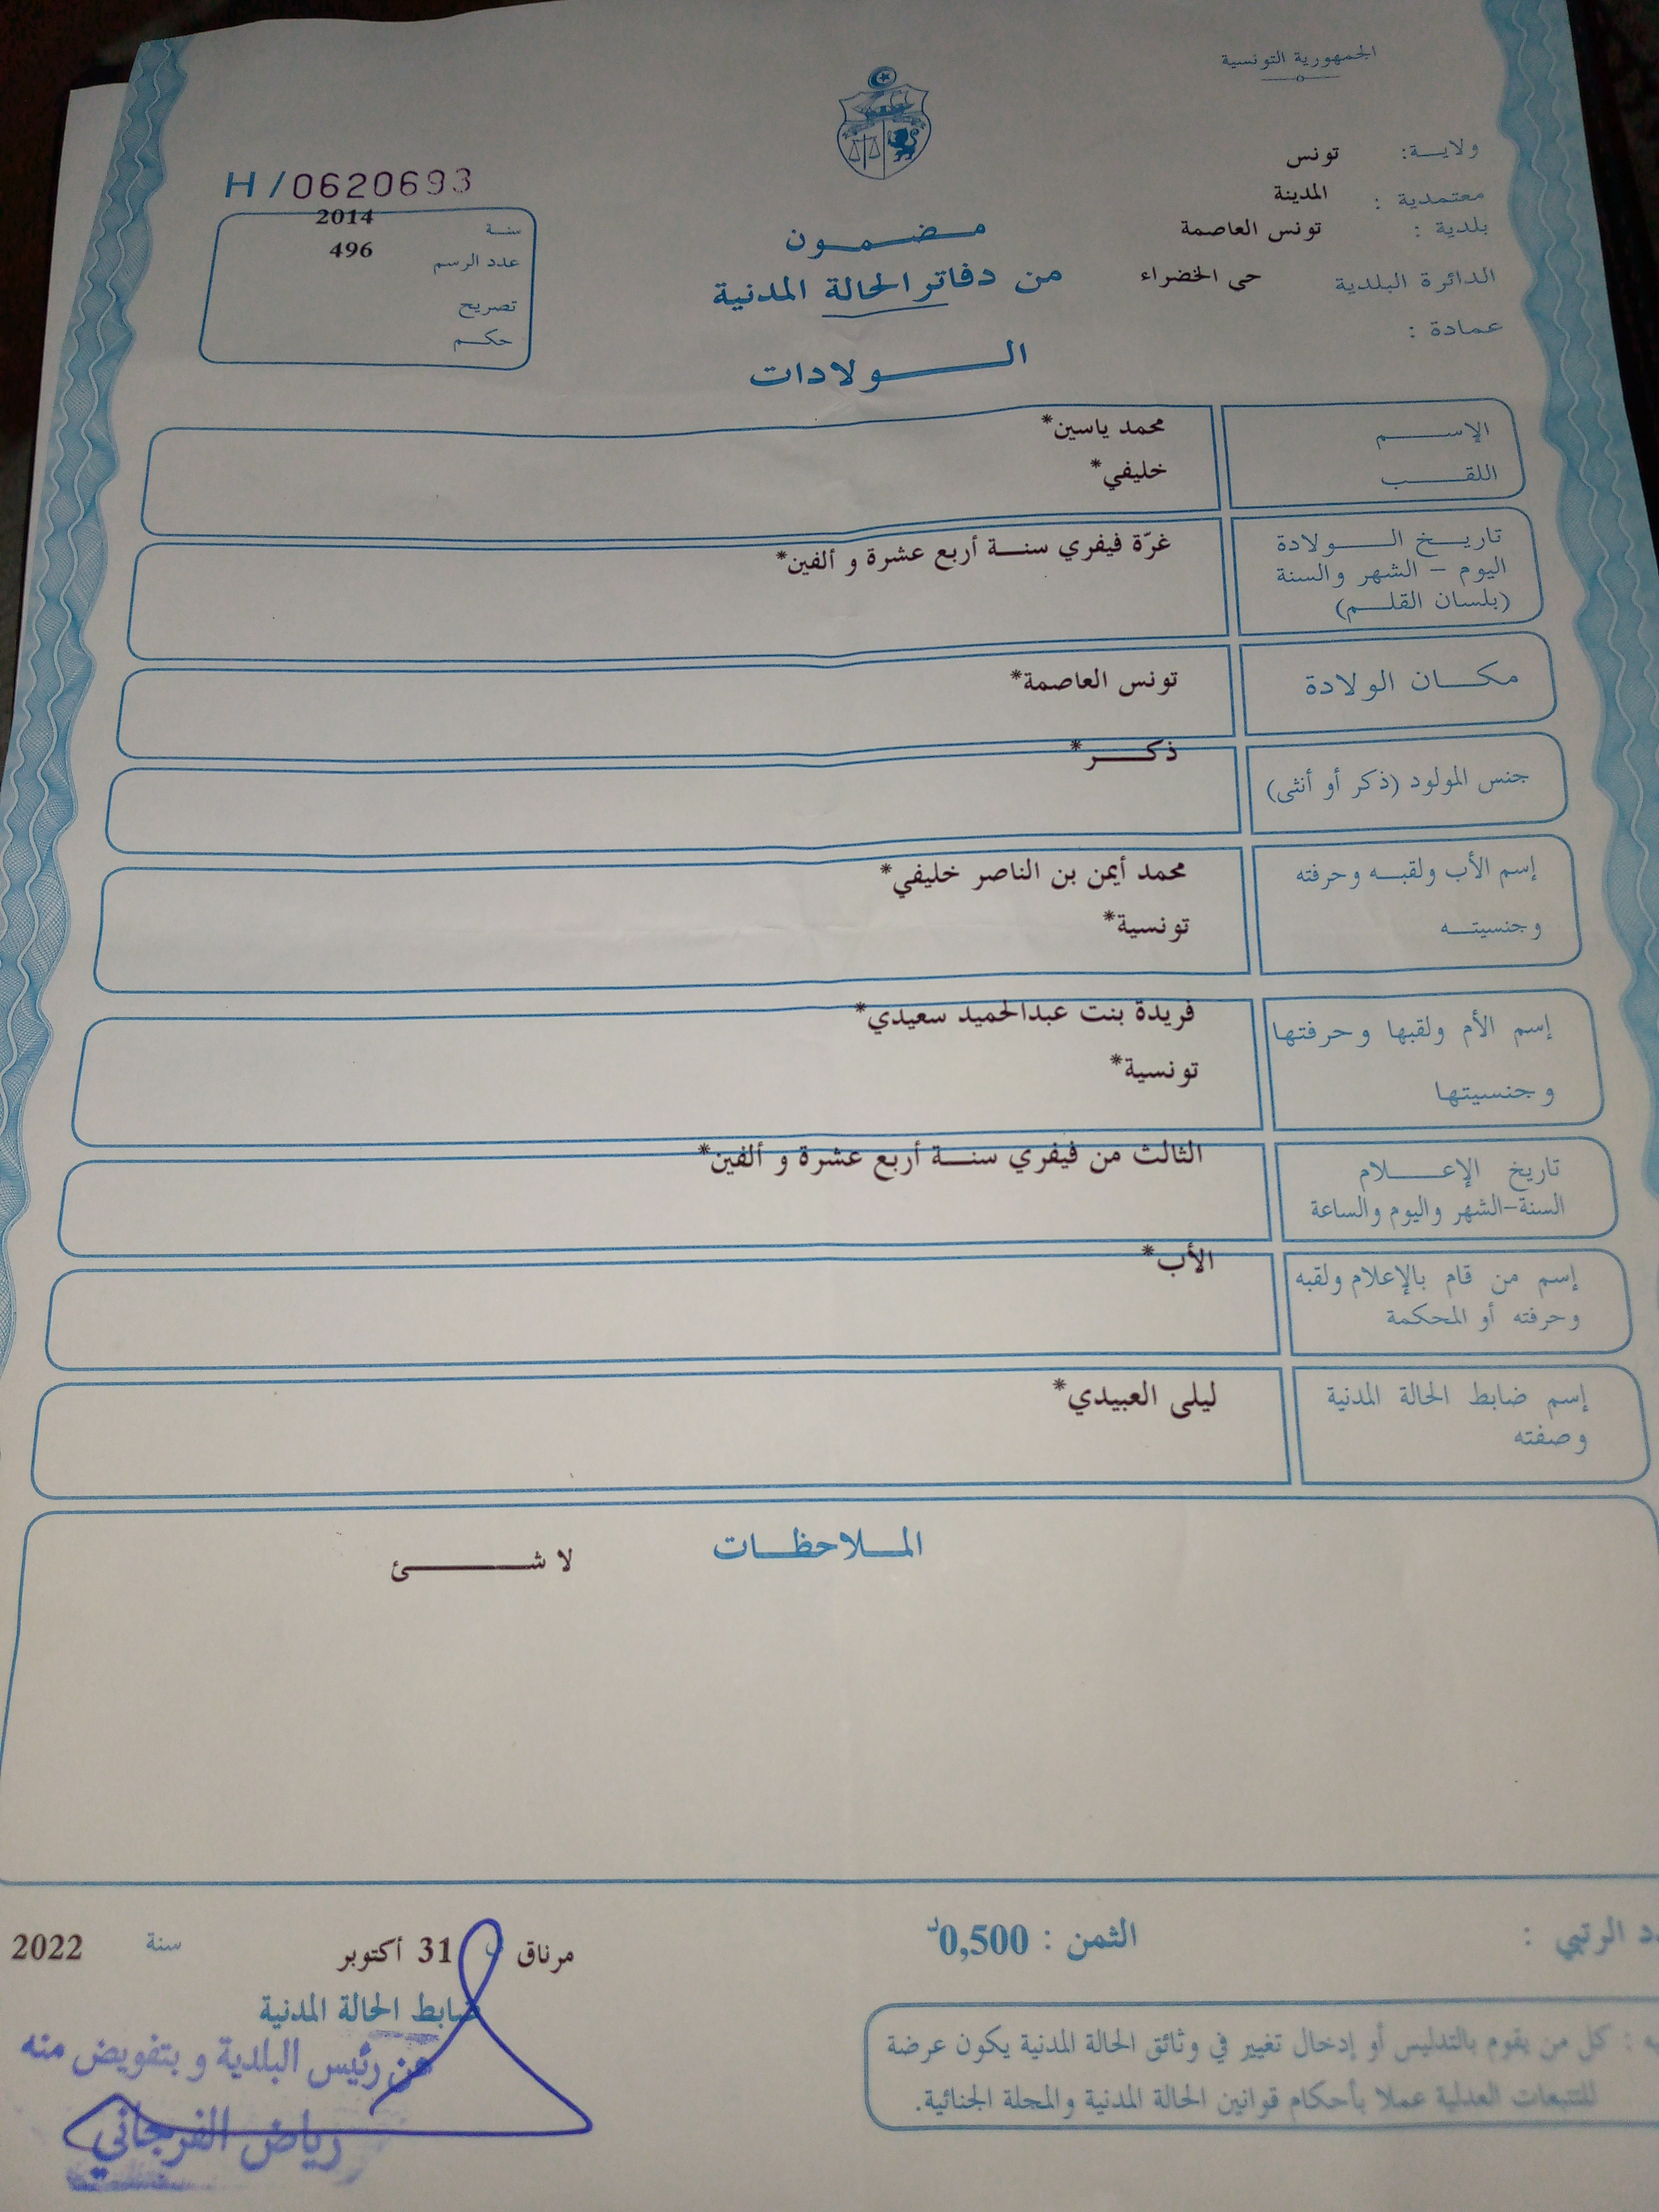 الجمهورية التونسية
ولاية: تونس
معتمدية : المدينة
بلدية : تونس العاصمة
الدائرة البلدية حي الخضراء
عمادة :
H/0620693
سنة 2014
عدد الرسم 496
تصريح
حكم
مضمون
من دفاتر الحالة المدنية
الولادات
الإسم محمد ياسين*
اللقب خليفي*
تاريخ الولادة غرّة فيفري سنة أربع عشرة و ألفين*
اليوم - الشهر والسنة
(بلسان القلم)
مكان الولادة تونس العاصمة*
جنس المولود (ذكر أو أنثى) ذكر*
إسم الأب ولقبه وحرفته محمد أيمن بن الناصر خليفي*
وجنسيته تونسية*
إسم الأم ولقبها وحرفتها فريدة بنت عبدالحميد سعيدي*
وجنسيتها تونسية*
تاريخ الإعلام الثالث من فيفري سنة أربع عشرة و ألفين*
السنة-الشهر واليوم والساعة
إسم من قام بالإعلام ولقبه الأب*
وحرفته أو المحكمة
إسم ضابط الحالة المدنية ليلى العبيدي*
وصفته
الملاحظات
لا شئ
الرتبي :
الثمن : 0,500د
مرناق 31 أكتوبر سنة 2022
ضابط الحالة المدنية
عن رئيس البلدية و بتفويض منه
رياض الفرجاني
: كل من يقوم بالتدليس أو إدخال تغيير في وثائق الحالة المدنية يكون عرضة
للتتبعات العدلية عملا بأحكام قوانين الحالة المدنية والمجلة الجنائية.